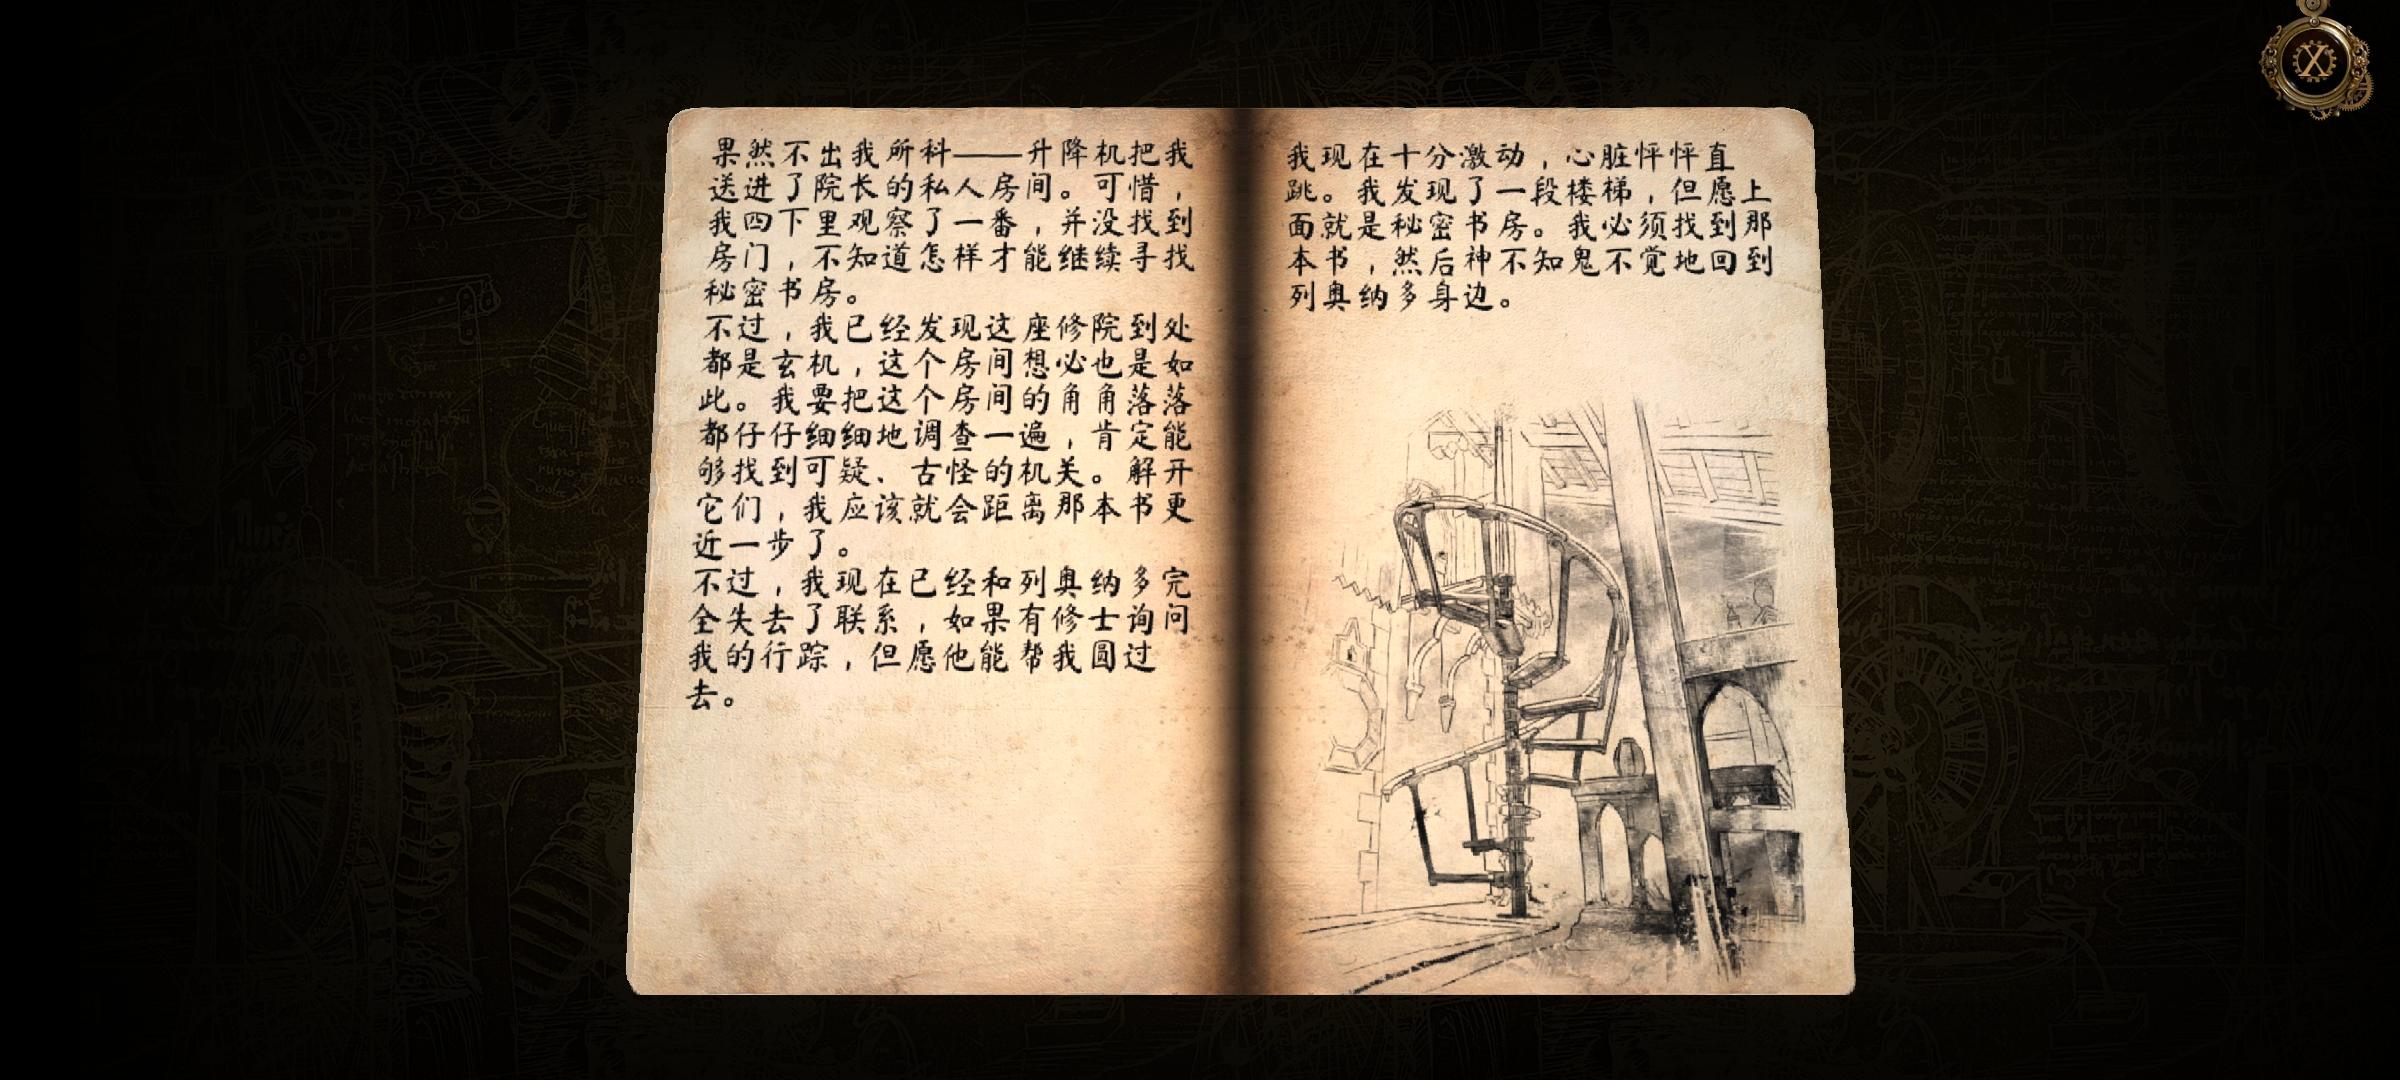 果然不出我所科——升降机把我
送进了院长的私人房间。可惜，
我四下里观察了一番，并没找到
房门，不知道怎样才能继续寻找
秘密书房。
不过，我已经发现这座修院到处
都是玄机，这个房间想必也是如
此。我要把这个房间的角角落落
都仔仔细细地调查一遍，肯定能
够找到可疑、古怪的机关。解开
它们，我应该就会距离那本书更
近一步了。
不过，我现在已经和列奥纳多完
全失去了联系，如果有修士询问
我的行踪，但愿他能帮我圆过
去。
我现在十分激动，心脏怦怦直
跳。我发现了一段楼梯，但愿上
面就是秘密书房。我必须找到那
本书，然后神不知鬼不觉地回到
列奥纳多身边。